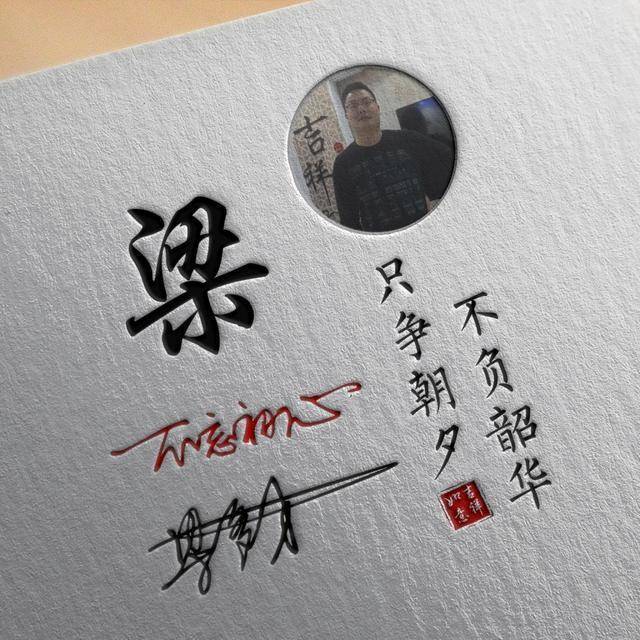 吉祥
梁
只争朝夕
不负韶华
不忘初心
吉祥
如意